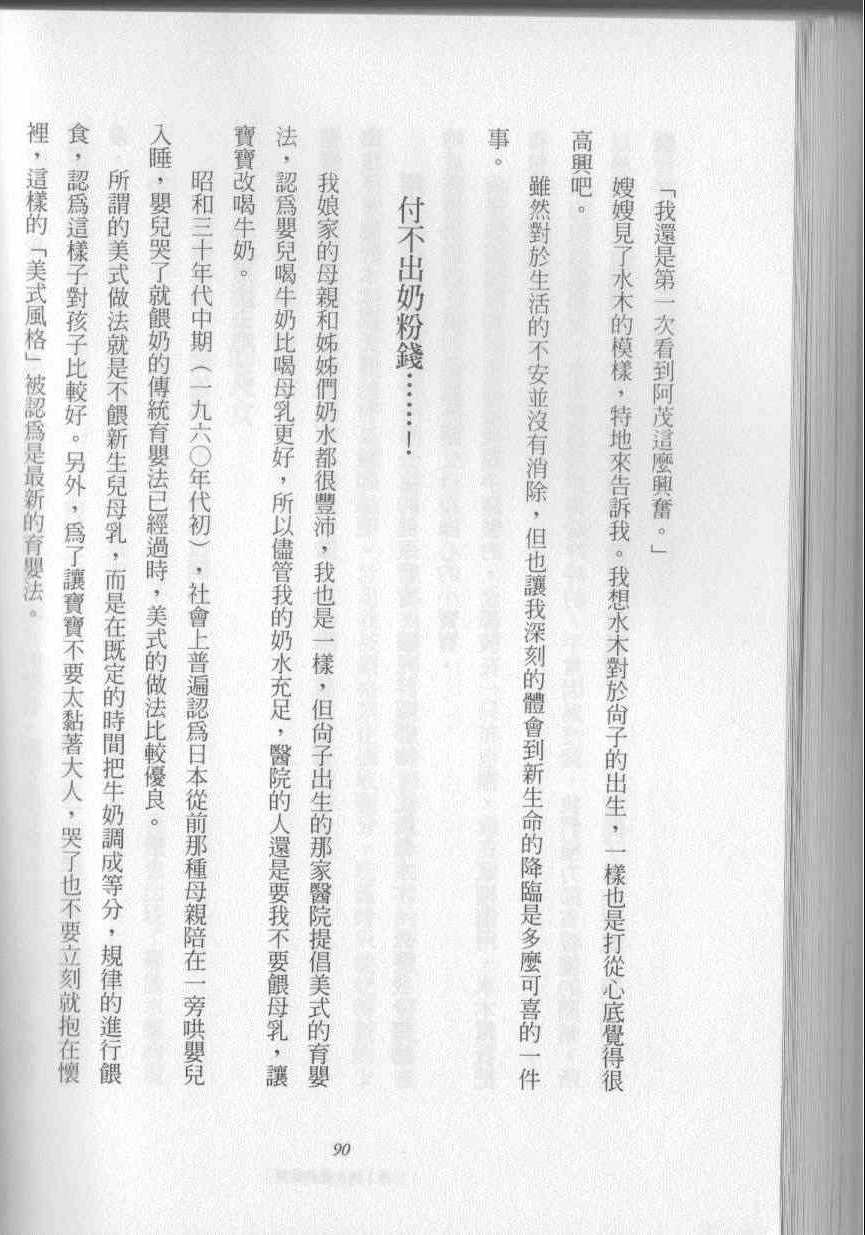 「我還是第一次看到阿茂這麼興奮。」
嫂嫂見了水木的模樣，特地來告訴我。我想水木對於尙子的出生，一樣也是打從心底覺得很
高興吧。
雖然對於生活的不安並沒有消除，但也讓我深刻的體會到新生命的降臨是多麼可喜的一件
事。
付不出奶粉錢……！
我娘家的母親和姊姊們奶水都很豐沛，我也是一樣，但尙子出生的那家醫院提倡美式的育嬰
法，認爲嬰兒喝牛奶比喝母乳更好，所以儘管我的奶水充足，醫院的人還是要我不要餵母乳，讓
寶寶改喝牛奶。
昭和三十年代中期（一九六〇年代初），社會上普遍認爲日本從前那種母親陪在一旁哄嬰兒
入睡，嬰兒哭了就餵奶的傳統育嬰法已經過時，美式的做法比較優良。
所謂的美式做法就是不餵新生兒母乳，而是在既定的時間把牛奶調成等分，規律的進行餵
食，認爲這樣子對孩子比較好。另外，爲了讓寶寶不要太黏著大人，哭了也不要立刻就抱在懷
裡，這樣的「美式風格」被認爲是最新的育嬰法。
90